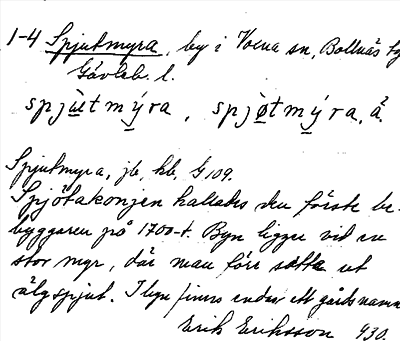 1-4 Spjutmyra, by i Voxna sn, Bollnäs
Gävleb. l.
spjùtmýra, spjøtmýra, å.
Spjutmyra, jb, kb, G 109.
Spjötakonjen kallades den förste be-
byggaren på 1700-t. Byn ligger vid en
stor myr, där man förr satte ut
älgspjut. I byn finns endast ett gårdsnamn
Erik Eriksson 930.